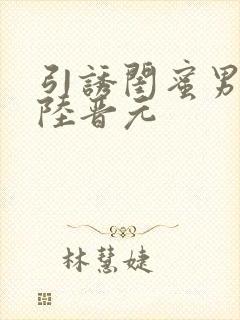 引誘閨蜜男
陸晋元
林慧婕